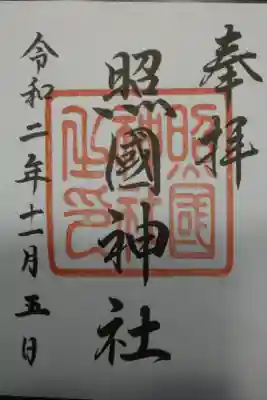 奉拝
照國神社
照國
神社
之印
令和二年十一月五日